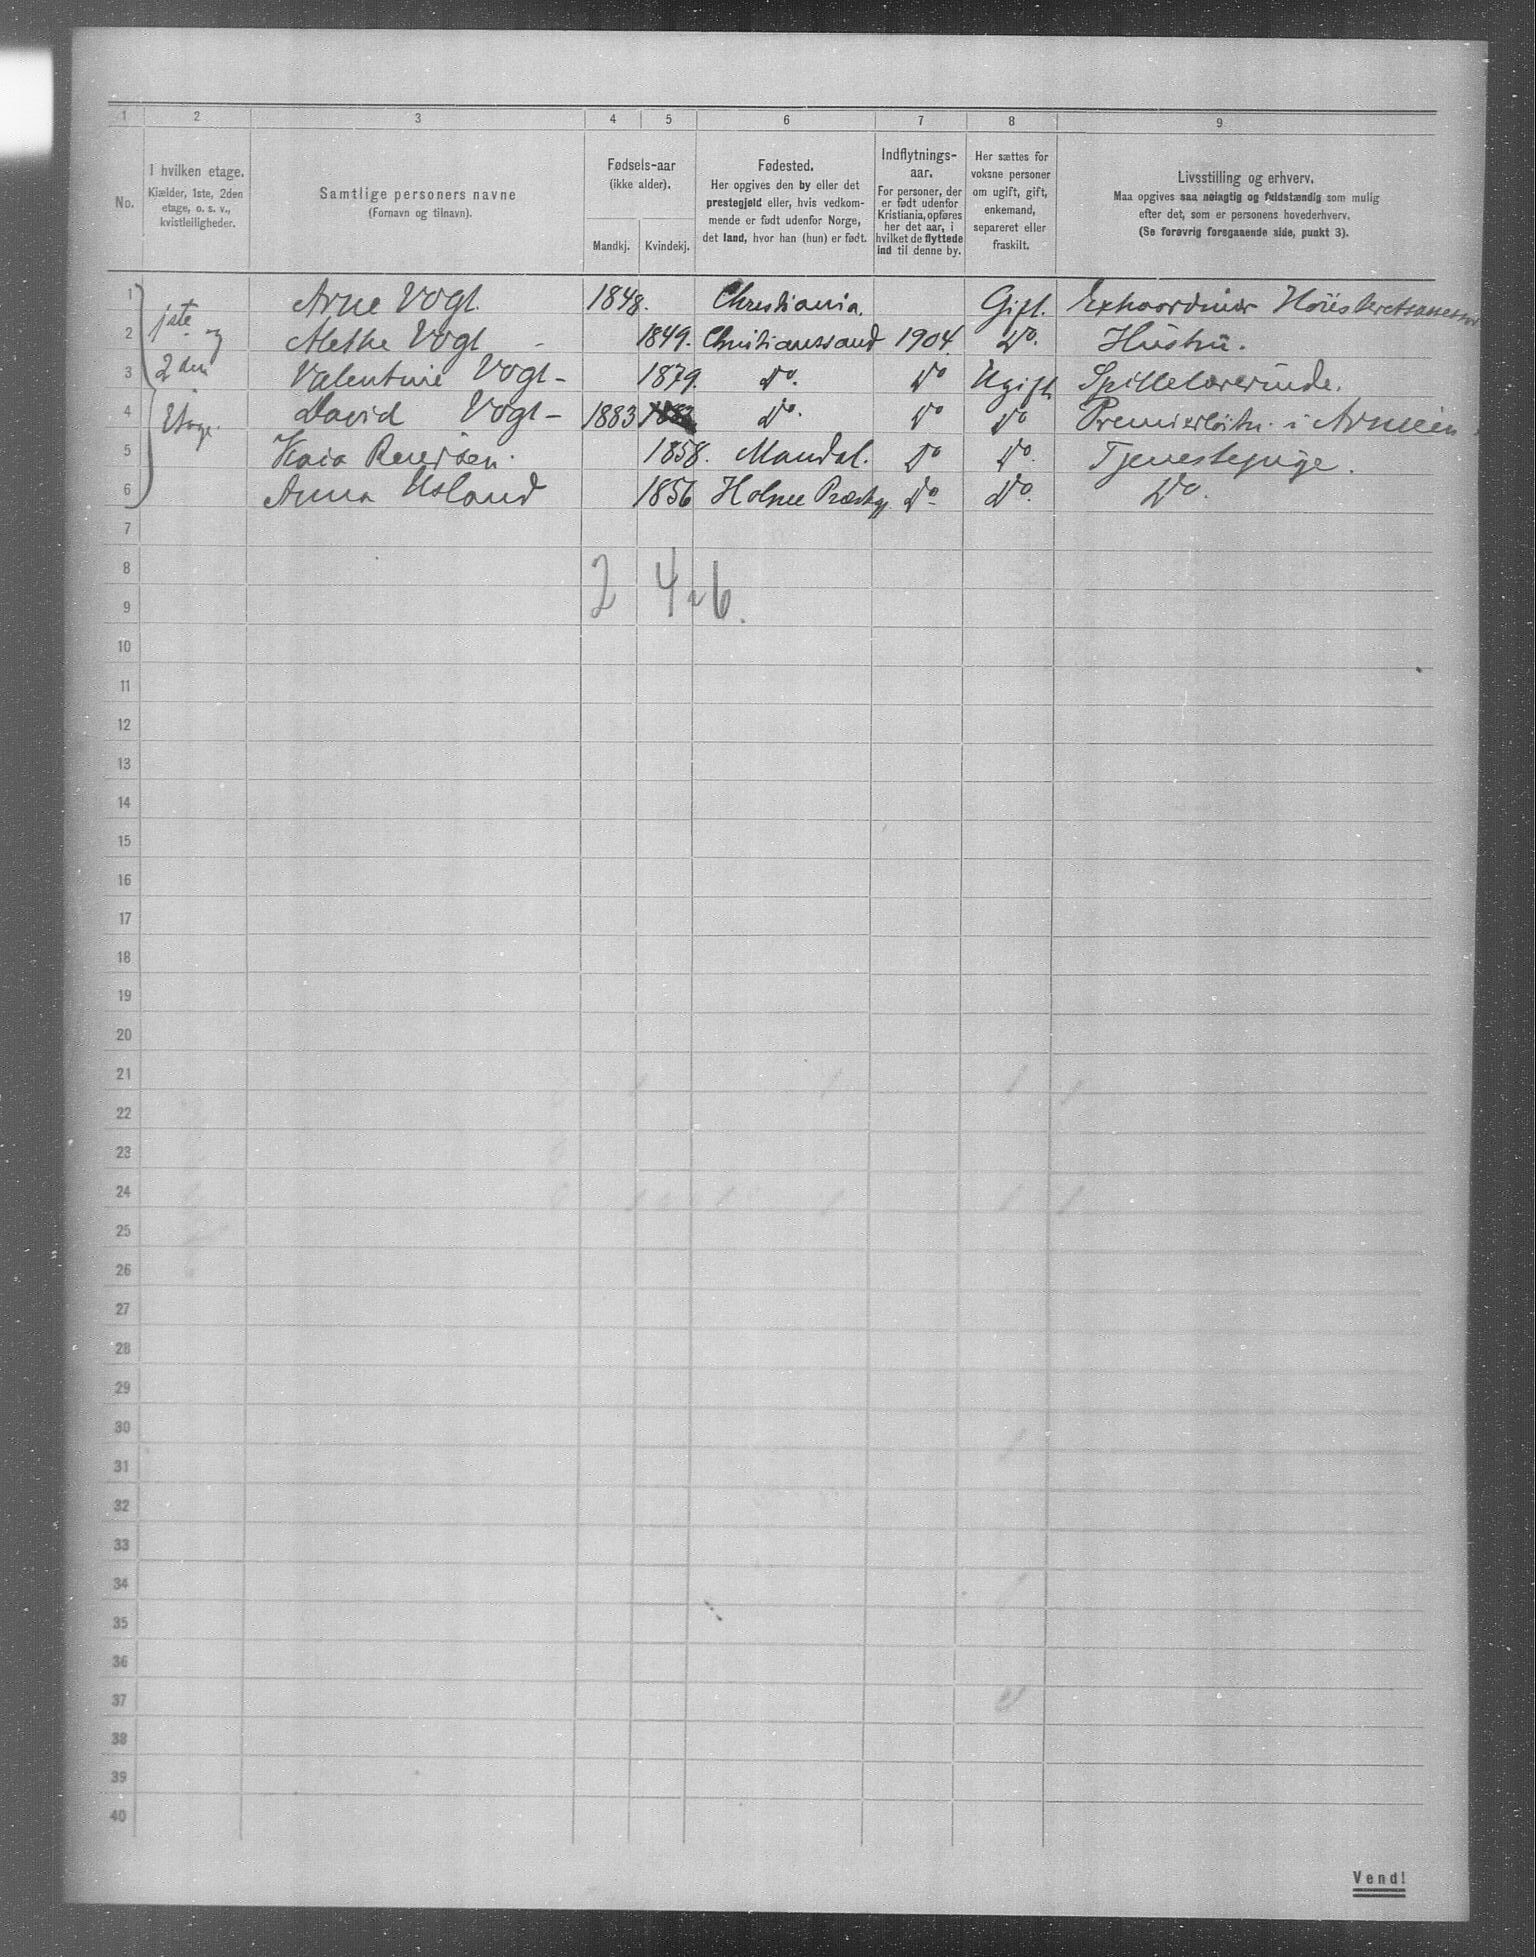 1 2 3 4 5 6 7 8 9
No. I hvilken etage. Kjælder, 1ste, 2den etage, o. s. v., kvistleiligheder. Samtlige personers navne (Fornavn og tilnavn). Fødsels-aar (ikke alder). Mandkj. Kvindekj. Fødested. Her opgives den by eller det prestegjeld eller, hvis vedkommende er født udenfor Norge, det land, hvor han (hun) er født. Indflytnings-aar. For personer, der er født udenfor Kristiania, opføres her det aar, i hvilket de flyttede ind til denne by. Her sættes for voksne personer om ugift, gift, enkemand, separeret eller fraskilt. Livsstilling og erhverv. Maa opgives saa nøiagtig og fuldstændig som mulig efter det, som er personens hovederhverv. (Se forøvrig foregaaende side, punkt 3).
1 1ste og Arne Vogt. 1848. Christiania. Gift. Extraordinær Höiesteretsassessor
2 Alethe Vogt - 1849. Christianssand 1904 Do. Hustru.
3 2den Valentine Vogt - 1879. Do. Do Ugift Spillelærerinde.
4 Etage. David Vogt - 1883 Do. Do Do Premierløitn. i Armeen.
5 Kaia 1858. Mandal. Do Do. Tjenestepige.
6 Anna Usland 1856 Præstgj Do Do. Do.
7
8 2 4 6.
9
10
11
12
13
14
15
16
17
18
19
20
21
22
23
24
25
26
27
28
29
30
31
32
33
34
35
36
37
38
39
40
Vend!